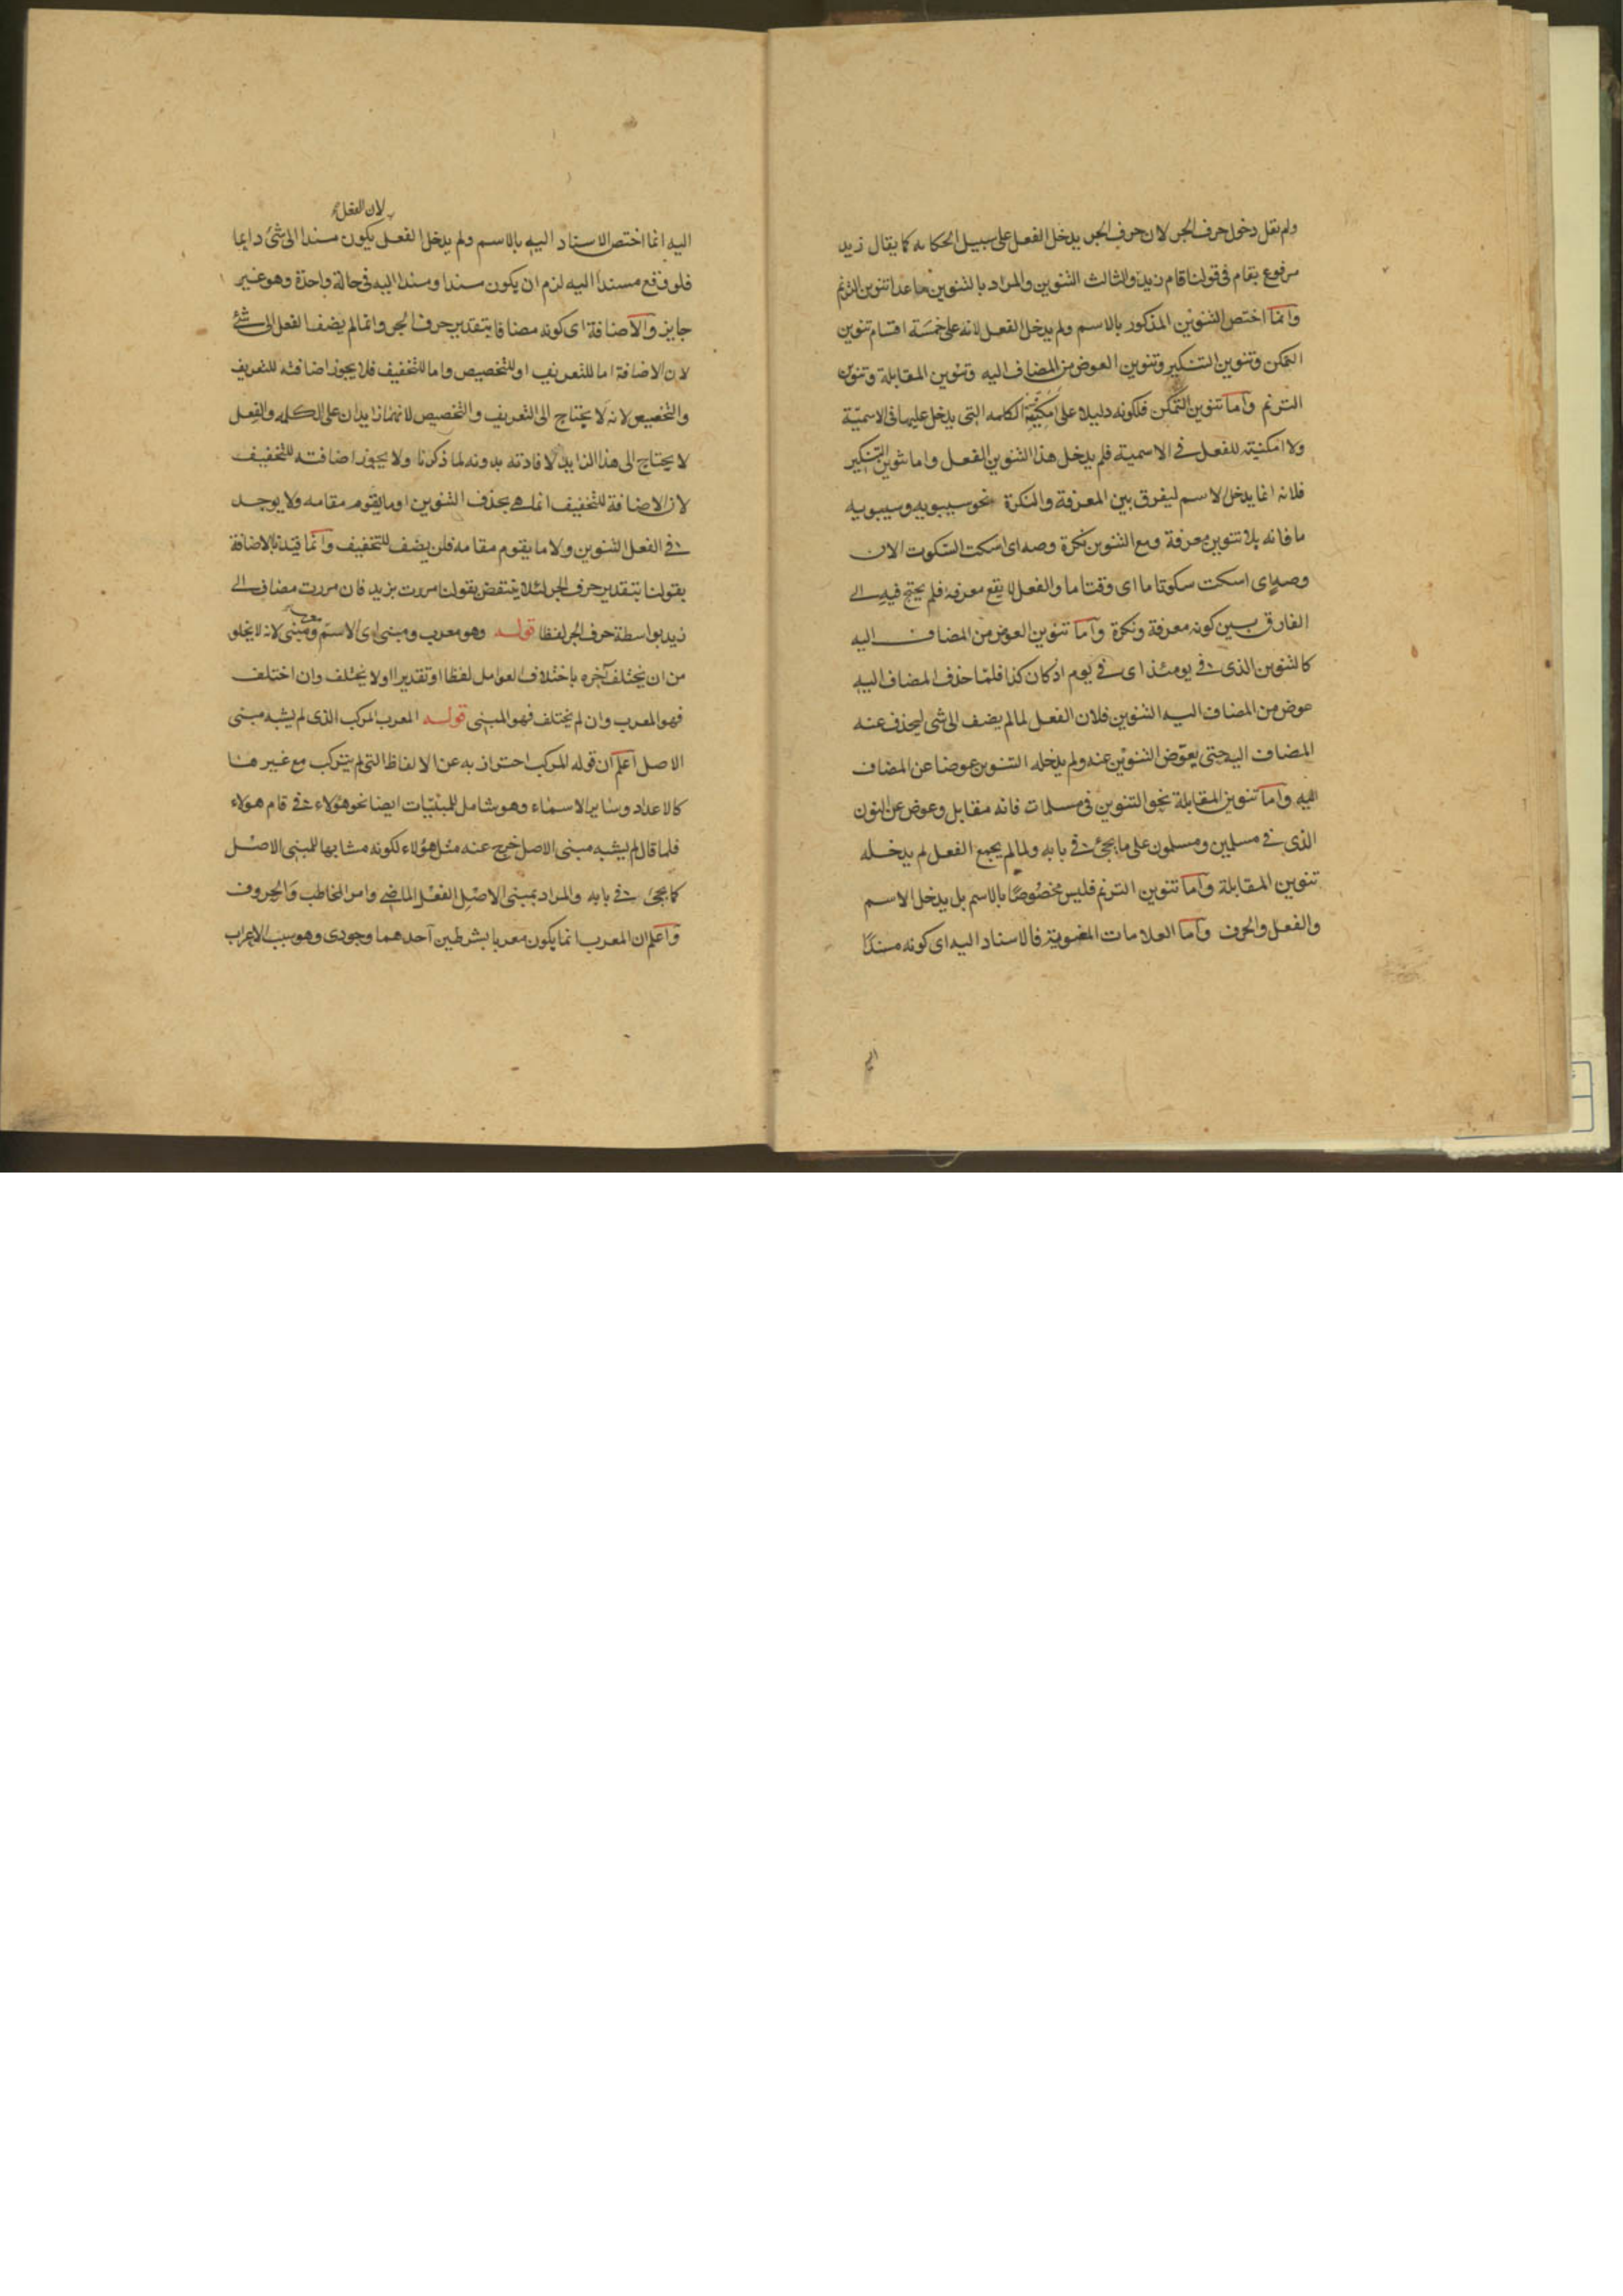 ولم يقل دخول حرف الجر لان حرف الجر يدخل الفعل على سبيل الحكاية كما يقال زيد
مرفوع بقام في قولنا قام زيد والثالث التنوين والمراد بالتنوين ما عدا تنوين الترنم
وانما اختص التنوين المذكور بالاسم ولم يدخل الفعل لانه على خمسة اقسام تنوين
التمكن وتنوين التنكير وتنوين العوض من المضاف اليه وتنوين المقابلة وتنوين
الترنم واما تنوين التمكن فلكونه دليلا على امكنية الكلمه التي يدخل عليها في الاسمية
ولا امكنية للفعل في الاسمية فلم يدخل هذا التنوين الفعل واما تنوين التنكير
فلانه انما يدخل الاسم ليفرق بين المعرفة والنكرة نحو سيبويه وسيبويه
ما فانه بلا تنوين معرفة ومع التنوين نكرة وصه اى اسكت السكوت الان
وصهٍ اى اسكت سكوتا ما اى وقتا ما والفعل لا يقع معرفة فلم يحتج فيه الى
الفارق بين كونه معرفة ونكرة واما تنوين العوض من المضاف اليه
كالتنوين الذى في يومئذ اى في يوم اذ كان كذا فلما حذف المضاف اليه
عوض من المضاف اليه التنوين فلان الفعل لما لم يضف الى شى ليحذف عنه
المضاف اليه حتى يعوّض التنوين عنه ولم يدخله التنوين عوضا عن المضاف
اليه واما تنوين المقابلة نحو التنوين في مسلمات فانه مقابل وعوض عن النون
الذى في مسلمين ومسلمون على ما يجئ في بابه ولما لم يجمع الفعل لم يدخله
تنوين المقابلة واما تنوين الترنم فليس مخصوصًا بالاسم بل يدخل الاسم
والفعل والحرف واما العلامات المعنوية فالاسناد اليه اى كونه مسندًا
اليه
لان الفعل
اليه انما اختص الاسناد اليه بالاسم ولم يدخل الفعل يكون مسندا الى شئ دايما
فلو وقع مسندا اليه لزم ان يكون مسندا ومسندا اليه في حالة واحدة وهو غير
جايز والاضافة اى كونه مضافا بتقدير حرف الجر وانما لم يضف الفعل الى شئ
لان الاضافة اما للتعريف او للتخصيص واما للتخفيف فلا يجوز اضافته للتعريف
والتخصيص لانه لا يحتاج الى التعريف والتخصيص لانهما زايدان على الكلمه والفعل
لا يحتاج الى هذا الزايد لافادته بدونه لما ذكرنا ولا يجوز اضافته للتخفيف
لان الاضافة للتخفيف انما هى بحذف التنوين او ما يقوم مقامه ولا يوجد
في الفعل التنوين ولا ما يقوم مقامه فلن يضف للتخفيف وانما قيدنا الاضافة
بقولنا بتقدير حرف الجر لئلا ينتقض بقولنا مررت بزيد فان مررت مضاف الى
زيد بواسطة حرف الجر لفظا قوله وهو معرب ومبنى اى الاسم معرب ومبنى لانه لا يخلو
من ان يختلف آخره باختلاف العوامل لفظا او تقديرا اولا يختلف وان اختلف
فهو المعرب وان لم يختلف فهو المبنى قوله المعرب المركب الذى لم يشبه مبنى
الاصل اعلم ان قوله المركب احتراز به عن الالفاظ التى لم يتركب مع غيرها
كالاعداد وساير الاسماء وهو شامل للمبنيات ايضا نحو هؤلاء في قام هؤلاء
فلما قال لم يشبه مبنى الاصل خرج عنه مثل هؤلاء لكونه مشابها للمبنى الاصل
كما يجئ في بابه والمراد بمبنى الاصل الفعل الماضى وامر المخاطب والحروف
واعلم ان المعرب انما يكون معربا بشرطين احدهما وجودى وهو سبب الاعراب